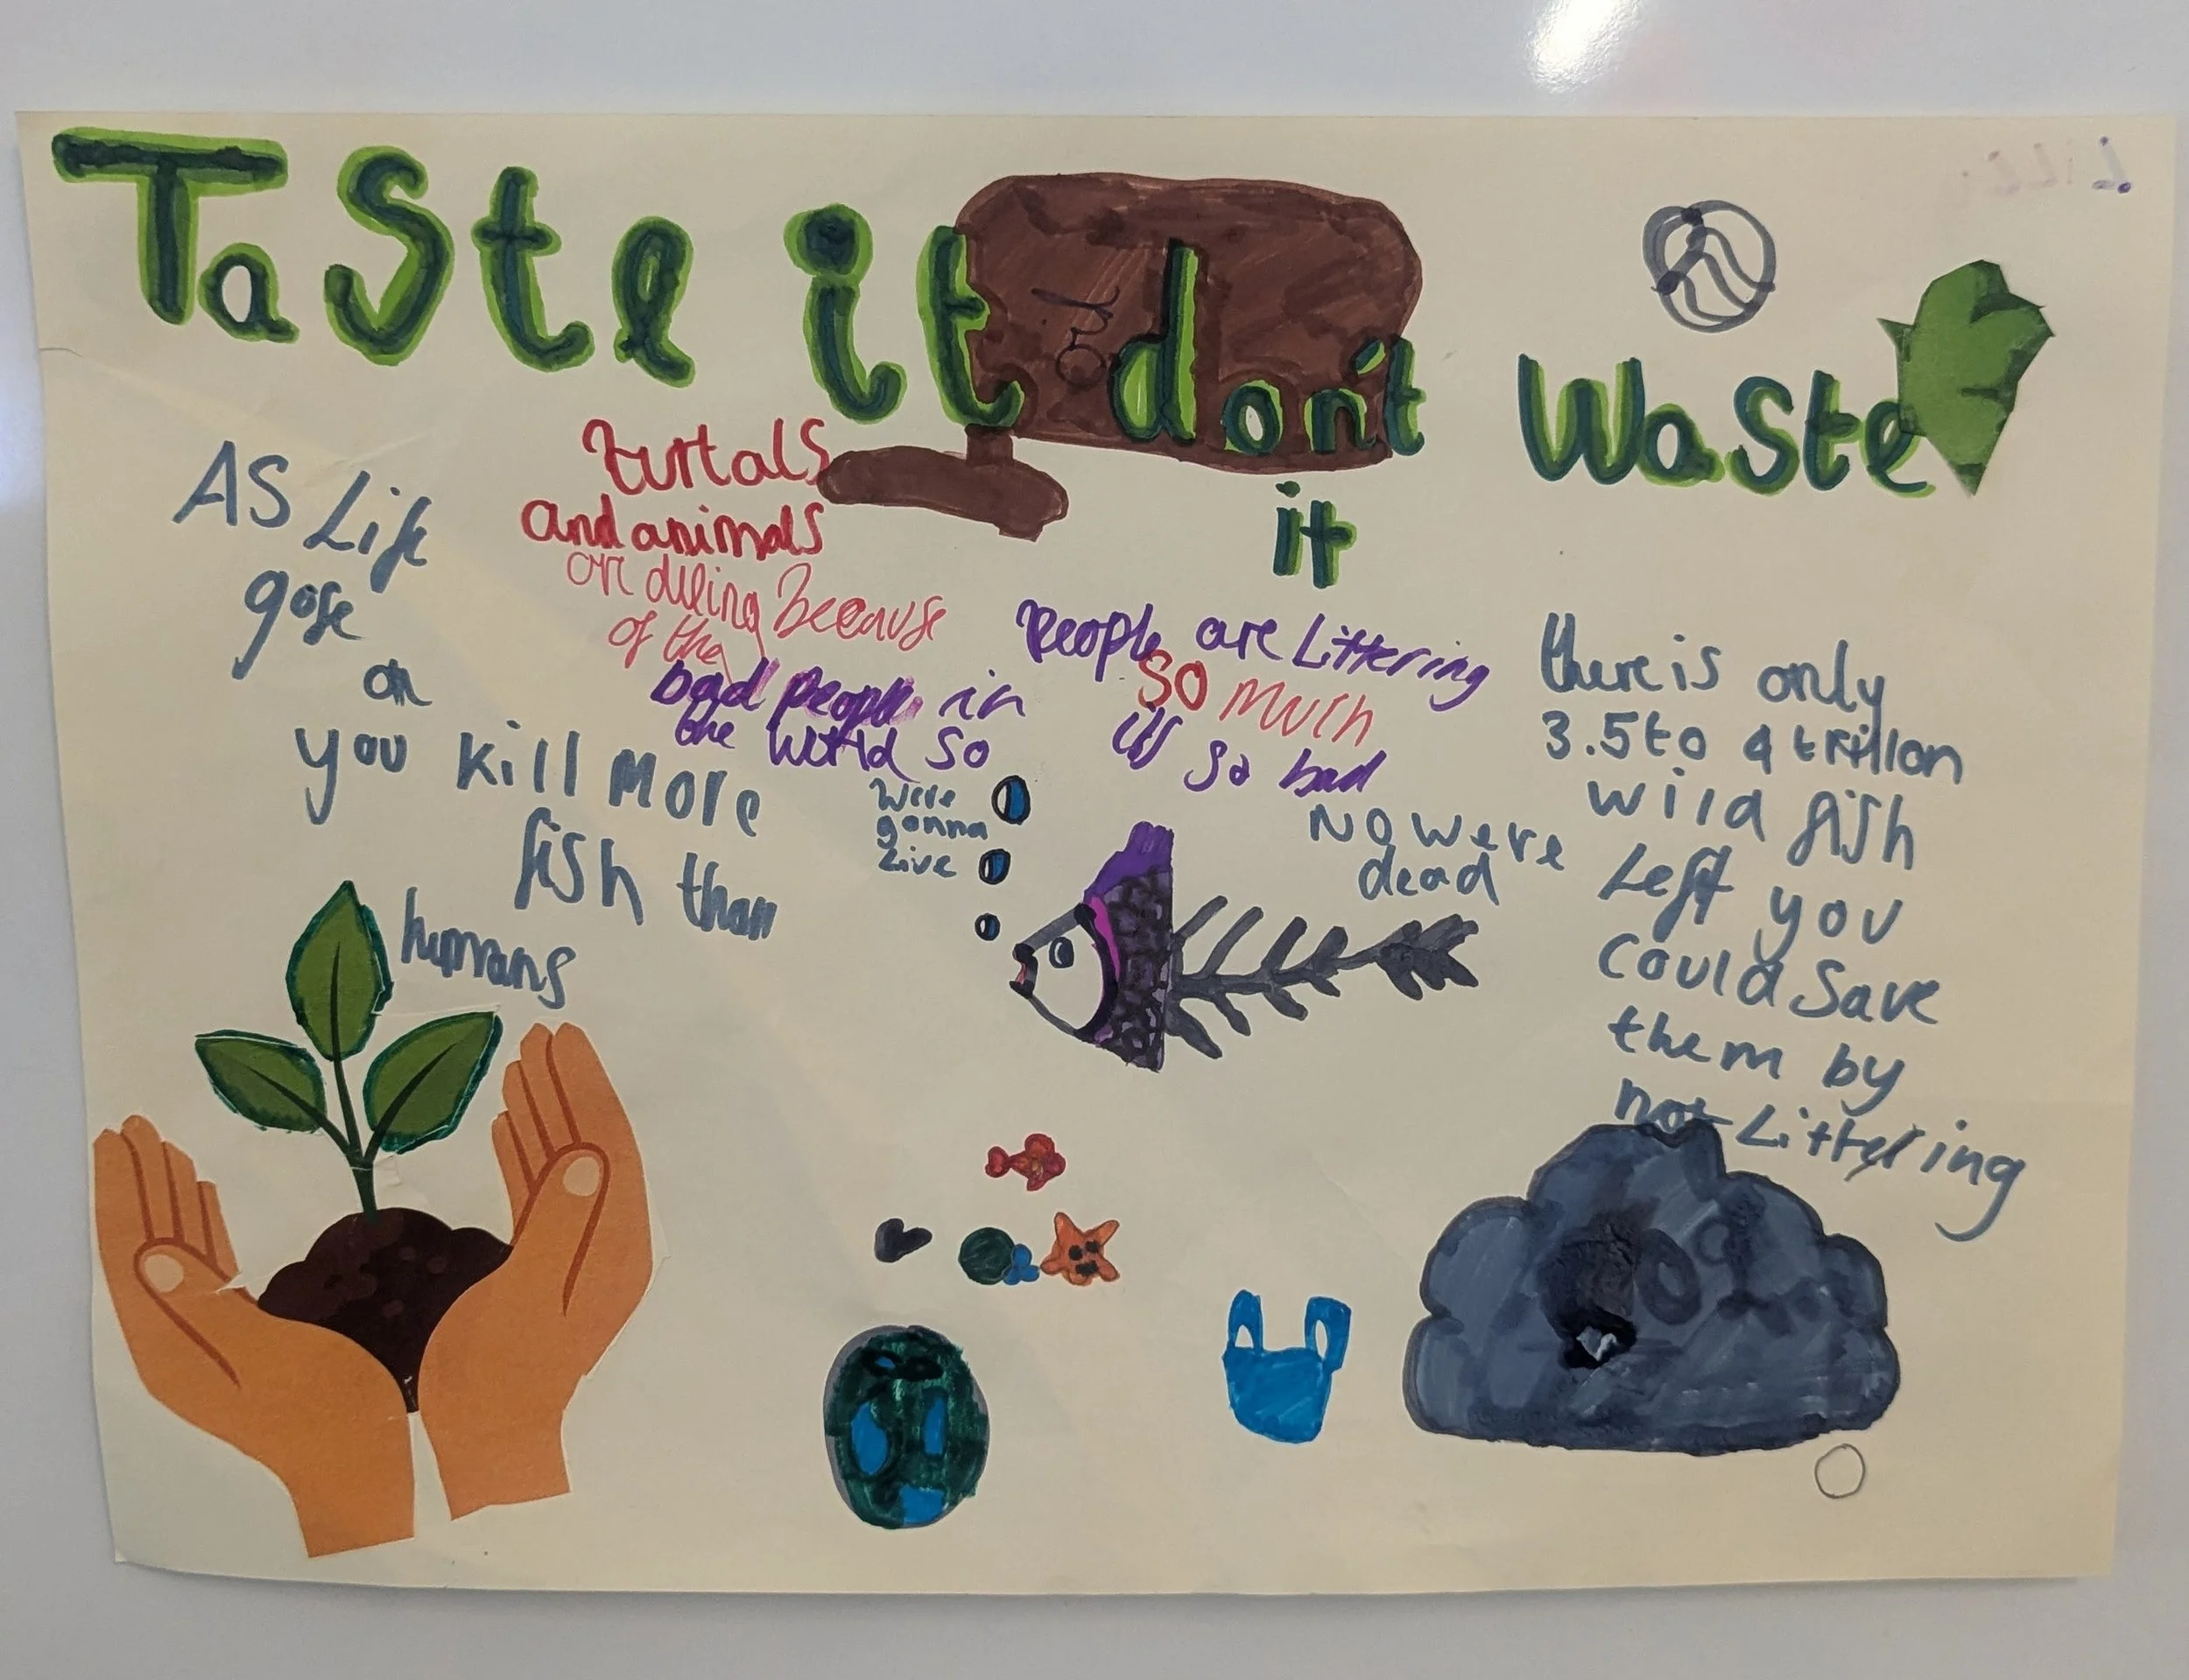 Taste it don't Waste
it
As Life
gose
on
you kill more
fish than
humans
turtals
and animals
are dieing because
of the
bad people in
the world so
People are Littering
so much
it's so bad
were
gonna
Live
No were
dead
there is only
3.5 to 4 trillon
wild fish
Left you
could save
them by
not Littering